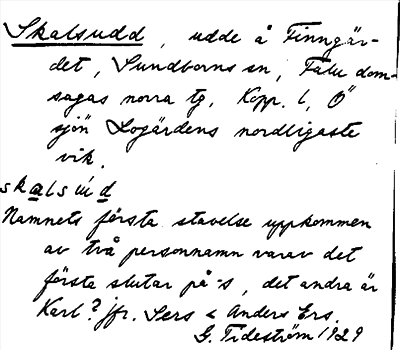 Skalsudd, udde å Finngär-
det, Sundborns sn, Falu dom-
sagas norra tg, Kopp. l, Ö
sjön Logärdens nordligaste
vik.
skalsud
Namnets första stavelse uppkommen
av två personnamn varav det
första slutar på -s, det andra är
Karl? jfr. Sers & Anders Ers.
G. Tideström 1929